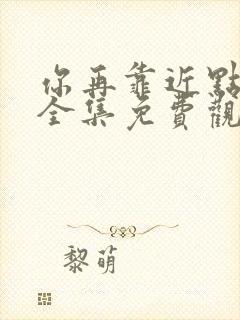 你再靠近點
全集免費觀
黎萌